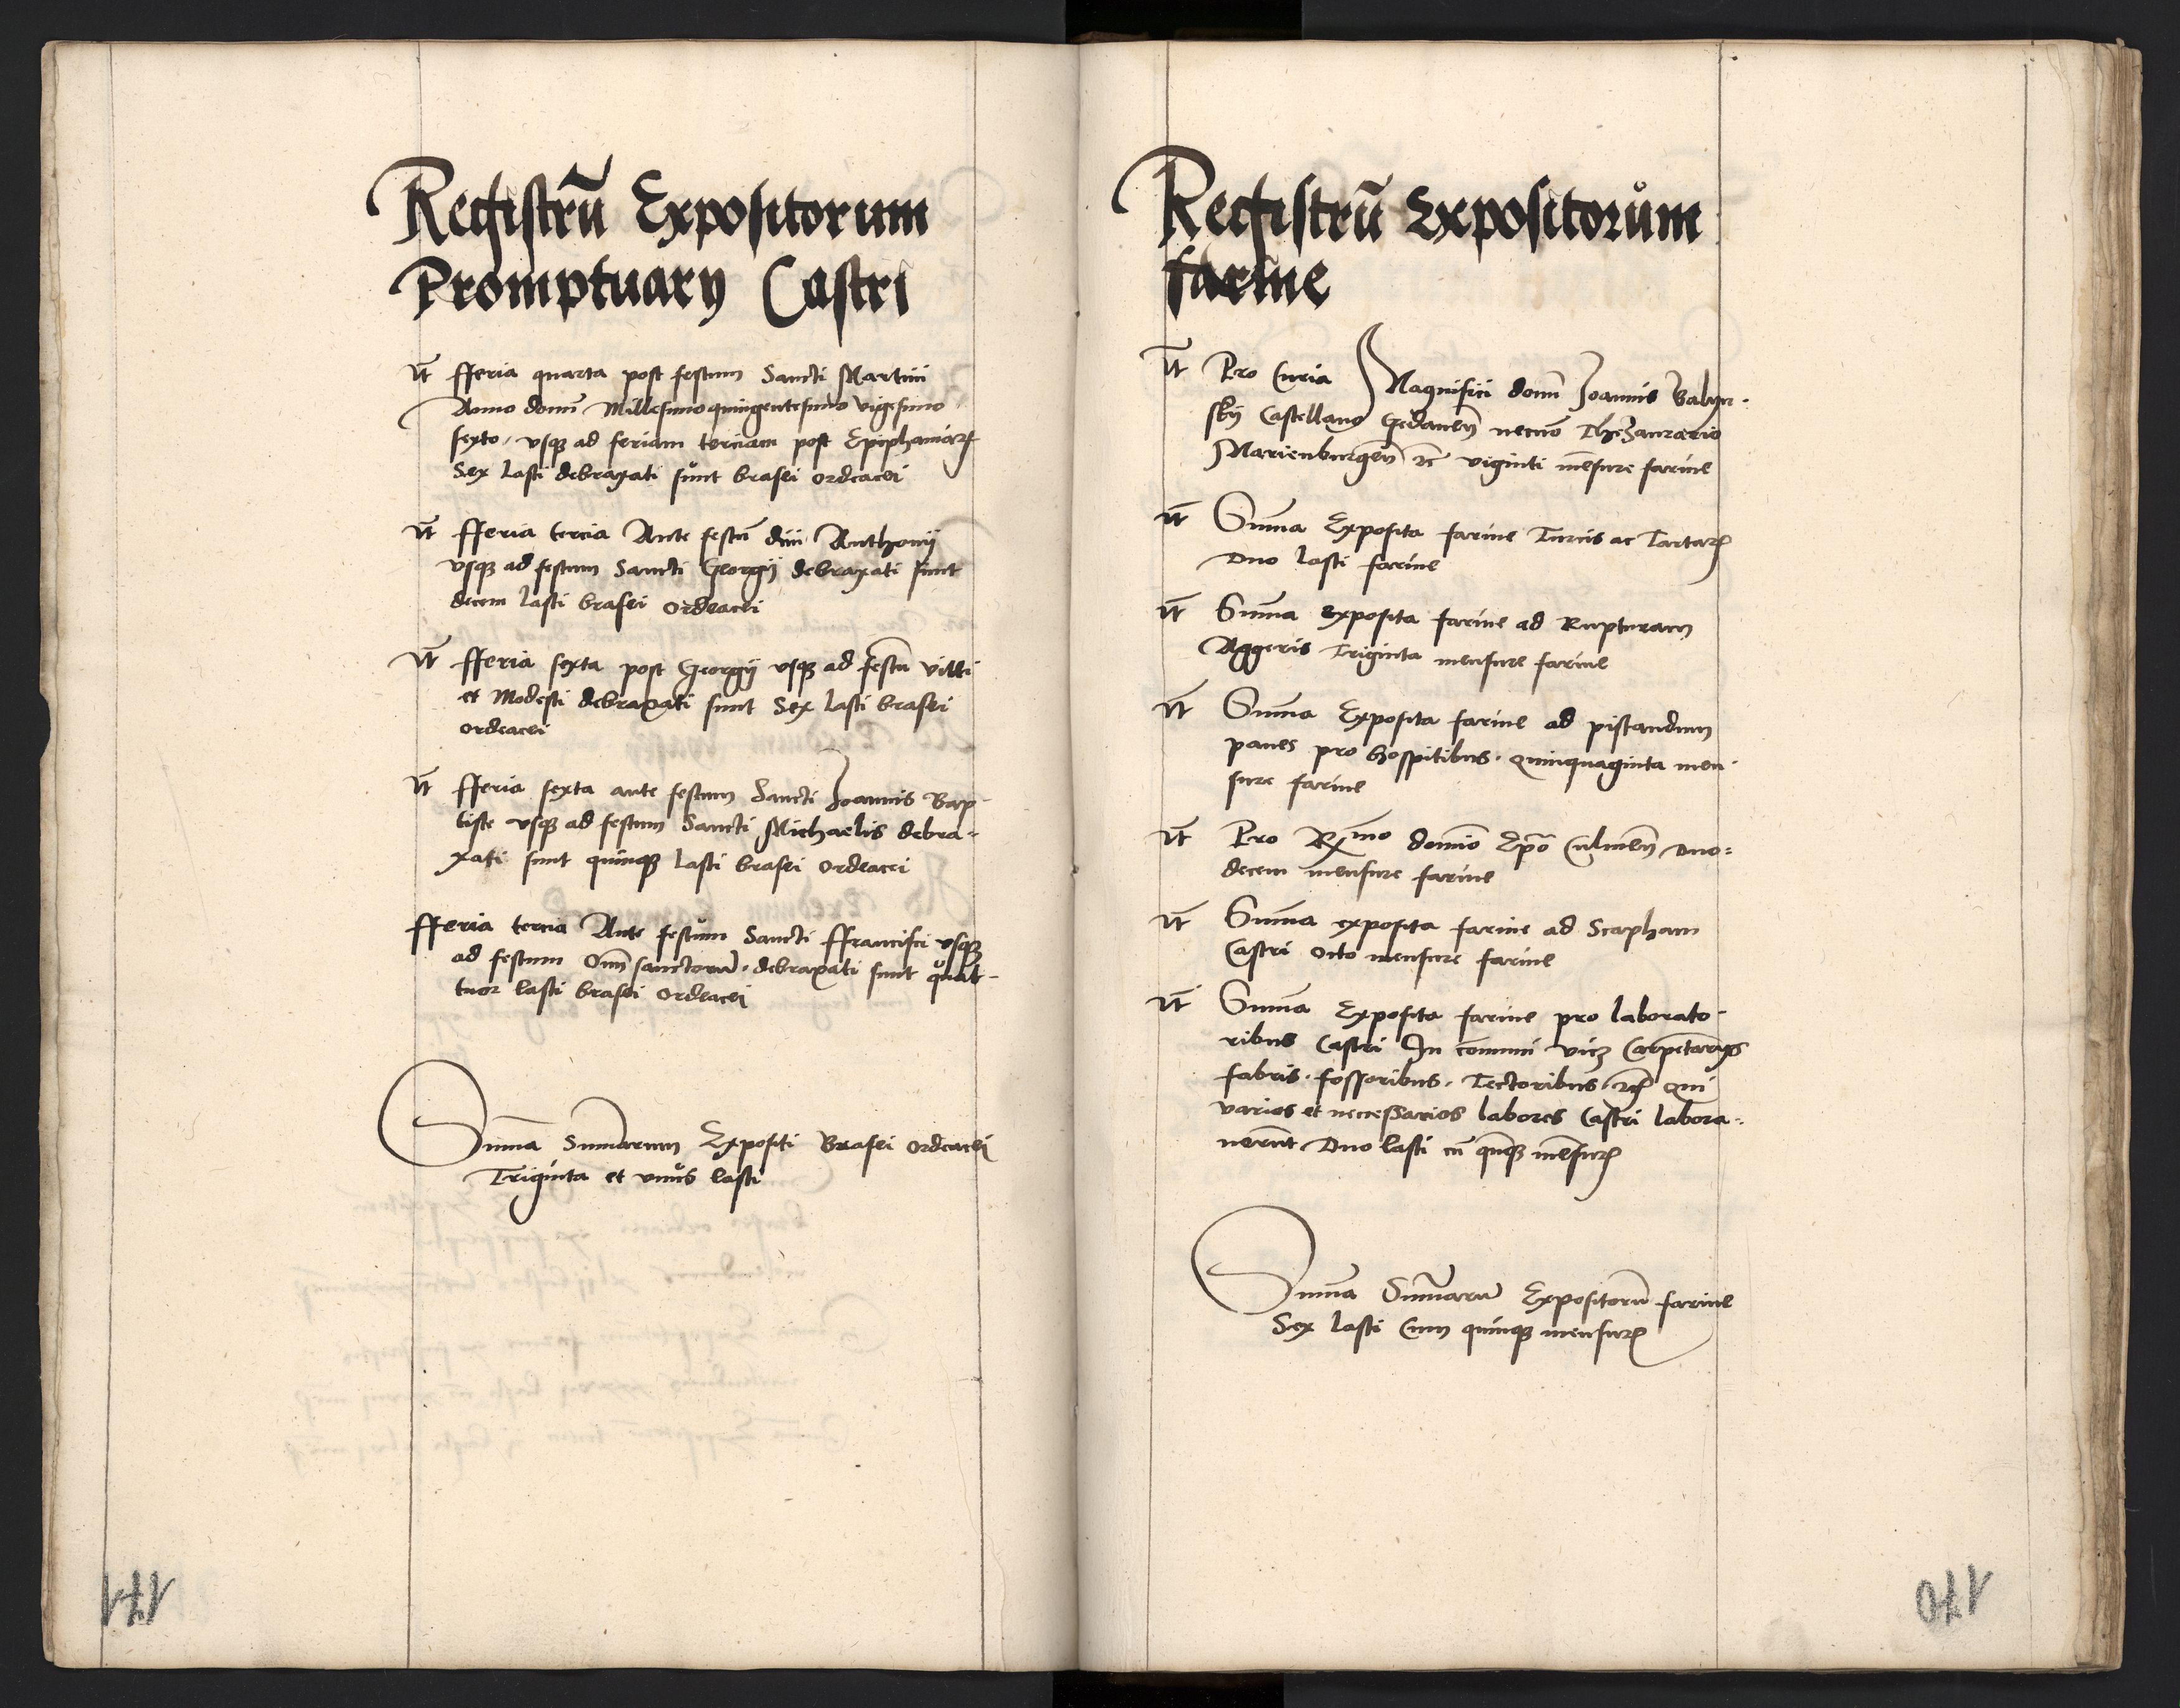 Registrū Expositorum
Promptuarÿ Castri
Ite͞ fferia quarta post festum Sancti Martini
Anno domī Millesimo quingentesimo vigesimo
sexto, vsqꝫ ad feriam terciam post Epiphaniarꝝ
Sex lasti debraxati sunt brasei ordeacei
Ite͞ fferia tercia Ante festū diui Anthonij
vsqꝫ ad festum Sancti Georgij debraxati sunt
decem lasti brasei ordeacei
Ite͞ fferia sexta post Georgij vsqꝫ ad festū vitti
et Modesti debraxati sunt Sex lasti brasei
ordeacei
Ite͞ fferia sexta ante festum Sancti Joannis Bap-
tiste vsqꝫ ad festum Sancti Michaelis debra-
xati sunt quinqꝫ lasti brasei ordeacei
fferia tercia Ante festum Sancti ffrancisci vsqꝫ
ad festum Om̄ sanctorū debraxati sunt quat-
tuor lasti brasei ordeacei
Suma Sumarum Expositi Brasei ordeacei
Triginta et vnus lasti
171
Registrū Expositorum
farine
Ite͞ Pro Curia Magnifici domī Joannis Balyn-
skij Castellano Gedaneñ necnō Thezaurario
Marienburgeñ ꝛc viginti mēsure farine
Ite͞ Suma Exposita farine Turcis ac Tartarꝝ
Duo lasti farine
Ite͞ Suma exposita farine ad Rupturam
Aggeris Triginta mensure farine
Ite͞ Suma Exposita farine ad pistandum
panes pro hospitibus. quinquaginta men-
sure farine
Ite͞ Pro Rx̄mo domīo Ep̄o Culmeñ Duo-
decem mensure farine
Ite͞ Suma exposita farine ad Scapham
Castri octo mensure farine
Ite͞ Suma Exposita farine pro laborato-
ribus Castri In comuni vicꝫ Carpētarijs
fabris. fossoribus. Tectoribus ꝛc Qui
varios et necessarios labores Castri labora-
uerūt Duo lasti cū quīqꝫ mēsurꝭ
Suma Sumarū Expositorū farine
Sex lasti Cum quinqꝫ mensurꝭ
170